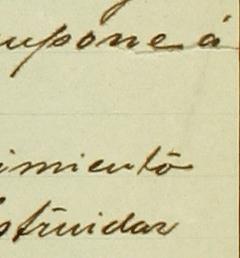 upone á
imiento
struidas